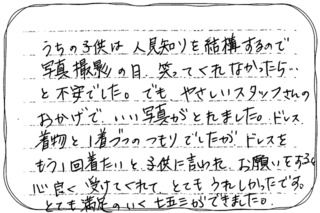 うちの子供は人見知りを結構するので
写真撮影の日、笑ってくれなかったら…
と不安でした。でも、やさしいスタッフさんの
おかげで、いい写真がとれました。ドレス
着物と1着づつのつもりでしたが、ドレスを
もう1回着たいと子供に言われ、お願いをすると
心良く受けてくれて、とてもうれしかったです。
とても満足のいく七五三ができました。